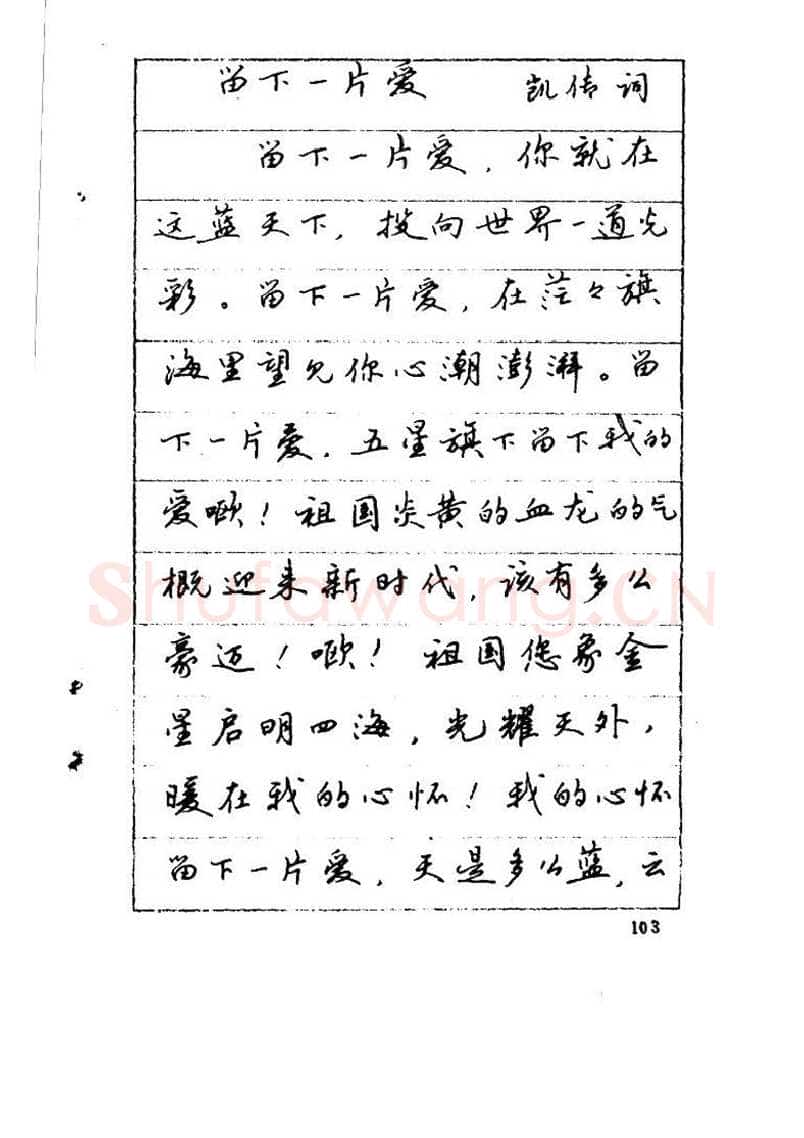 留下一片爱 凯传词
留下一片爱，你就在
这蓝天下，投向世界一道光
彩。留下一片爱，在茫々旗
海里望见你心潮澎湃。留
下一片爱，五星旗下留下我的
爱啾！祖国炎黄的血龙的气
概迎来新时代，该有多么
豪迈！啾！祖国您象金
星启明四海，光耀天外，
暖在我的心怀！我的心怀
留下一片爱，天是多么蓝，云
103
Shufawang.CN